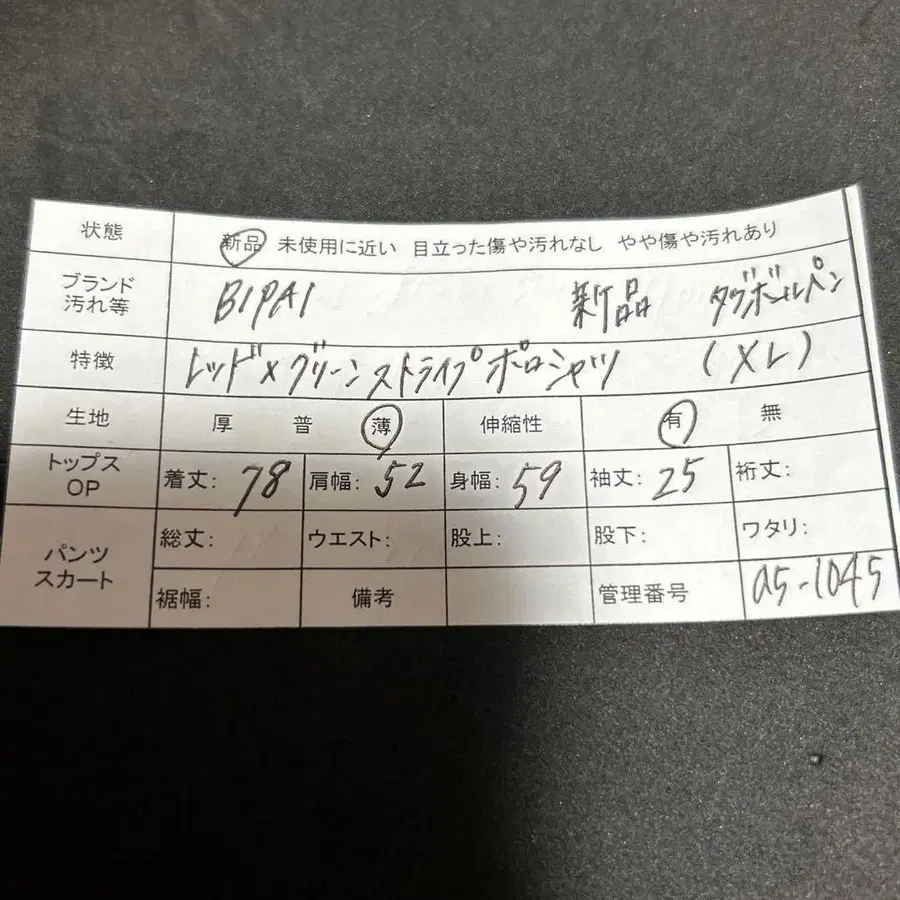 状態 新品 未使用に近い 目立った傷や汚れなし やや傷や汚れあり
ブランド
汚れ等 BIPAI 新品 タグボールペン
特徴 レッド×グリーンストライプポロシャツ (XL)
生地 厚 普 薄 伸縮性 有 無
トップス
OP 着丈: 78 肩幅: 52 身幅: 59 袖丈: 25 裄丈:
パンツ
スカート 総丈: ウエスト: 股上: 股下: ワタリ:
裾幅: 備考 管理番号 a5-1045